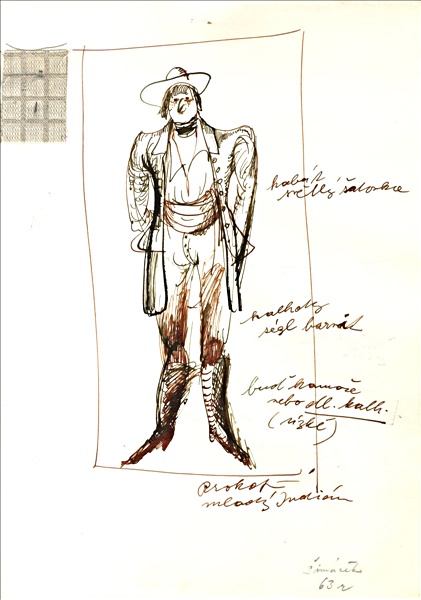 kabát
světlý šatovka
kalhoty
ségl barvit
buď kamaše
nebo dll. kalh.
(úzké)
Prokop –
mladý Indián
63 r